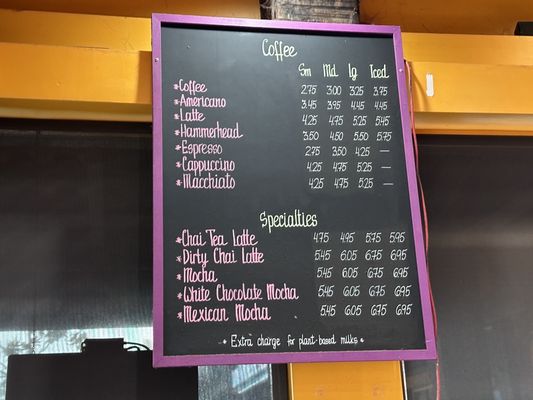 Coffee
Sm Md lg Iced
*Coffee 2.75 3.00 3.25 3.75
*Americano 3.45 3.95 4.45 4.45
*Latte 4.25 4.75 5.25 5.45
*Hammerhead 3.50 4.50 5.50 5.75
*Espresso 2.75 3.50 4.25 —
*Cappuccino 4.25 4.75 5.25 —
*Macchiato 4.25 4.75 5.25 —
Specialties
*Chai Tea Latte 4.75 4.95 5.75 5.95
*Dirty Chai Latte 5.45 6.05 6.75 6.95
*Mocha 5.45 6.05 6.75 6.95
*White Chocolate Mocha 5.45 6.05 6.75 6.95
*Mexican Mocha 5.45 6.05 6.75 6.95
* Extra charge for plant-based milks *